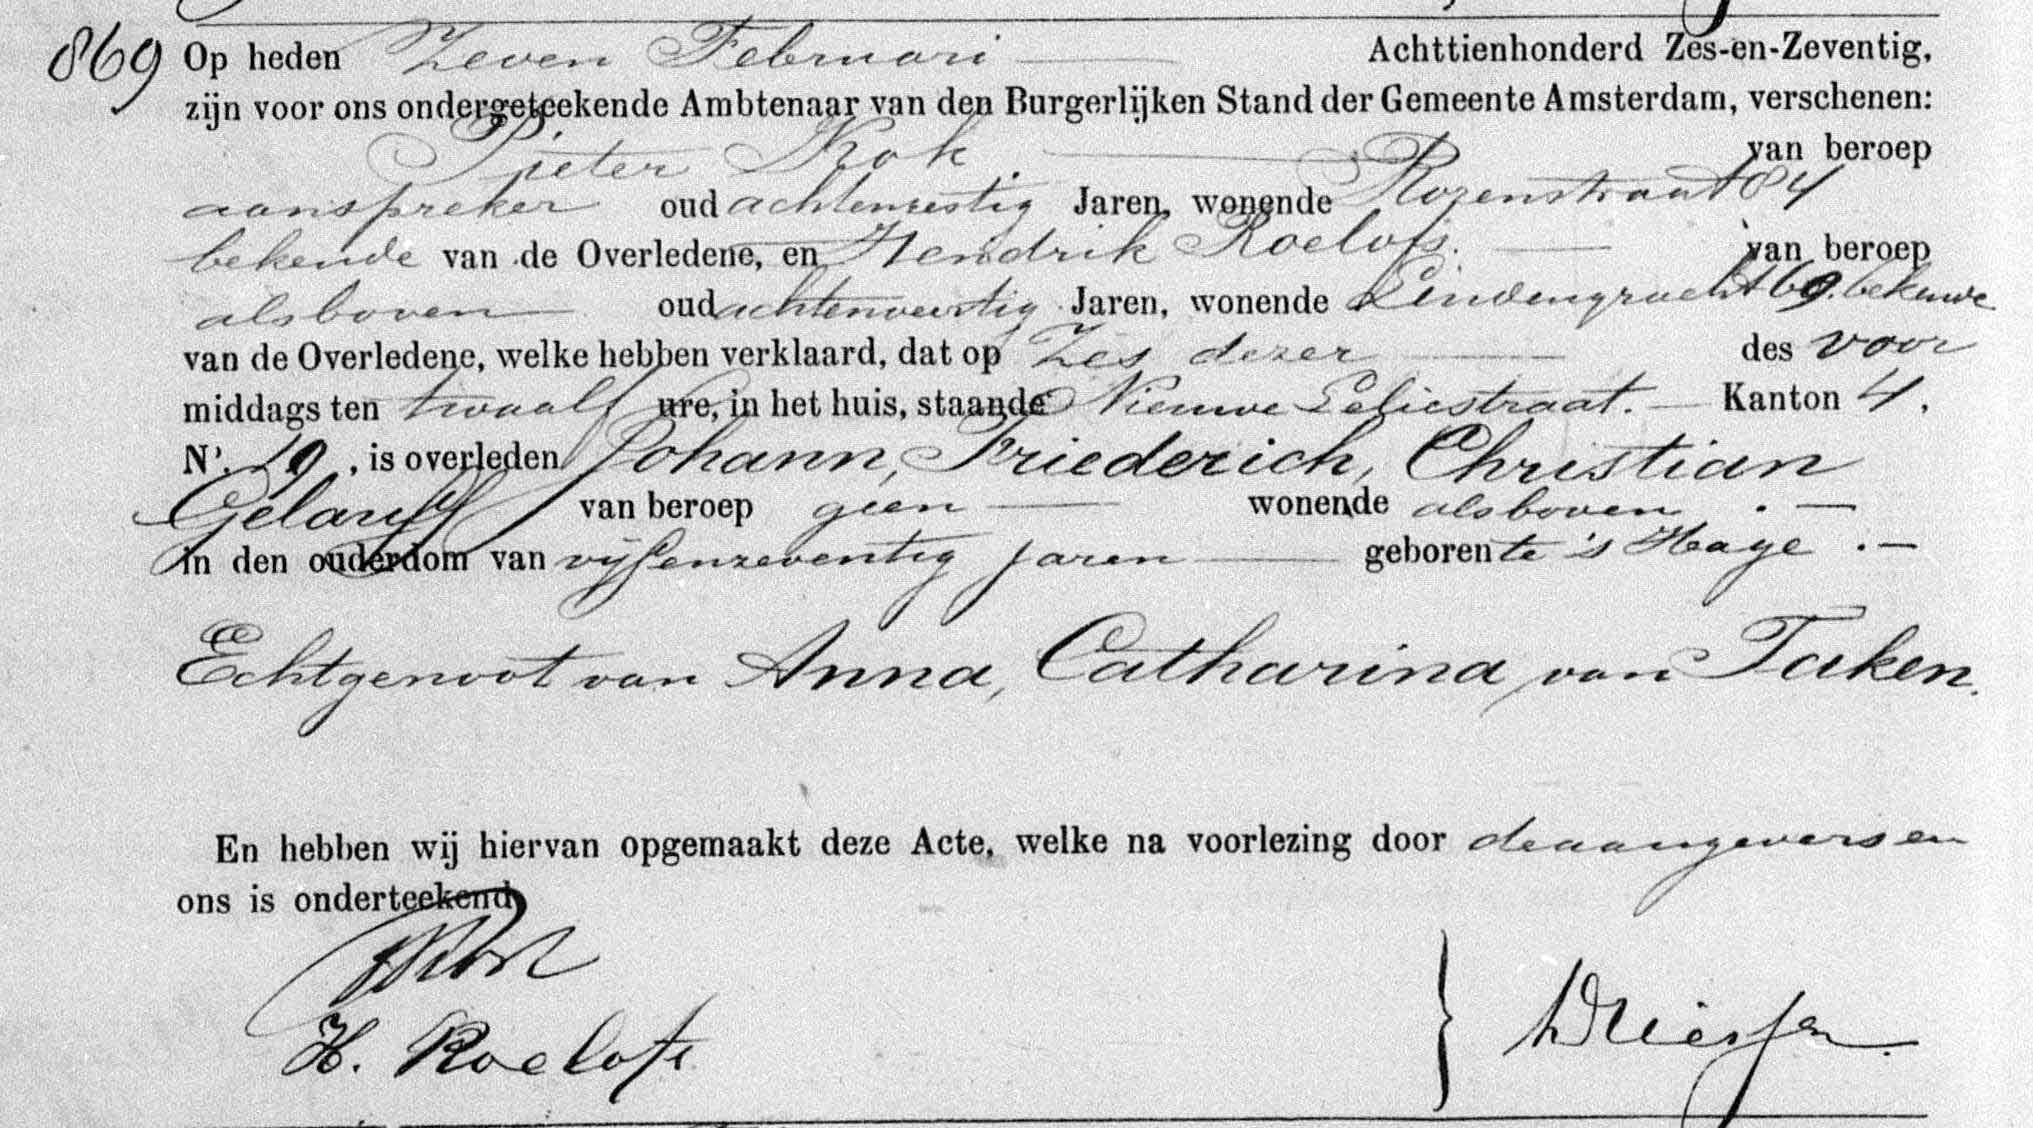 869 Op heden Zeven Februari Achttienhonderd Zes-en-Zeventig,
zijn voor ons ondergeteekende Ambtenaar van den Burgerlijken Stand der Gemeente Amsterdam, verschenen:
Pieter Kok van beroep
aanspreker oud achtenzestig Jaren, wonende Rozenstraat 84
bekende van de Overledene, en Hendrik Roelofs. van beroep
alsboven oud achtenveertig Jaren, wonende Lindengracht 69. bekende
van de Overledene, welke hebben verklaard, dat op Zes dezer des voor
middags ten twaalf ure, in het huis, staande Nieuwe Leliestraat. Kanton 4.
N°. 19, is overleden Johann, Friederich, Christian
Gelauff van beroep geen wonende alsboven.
in den ouderdom van vijfenzeventig jaren geboren te 's Hage.
Echtgenoot van Anna, Catharina van Taken.
En hebben wij hiervan opgemaakt deze Acte, welke na voorlezing door de aangevers en
ons is onderteekend
H. Roelofs